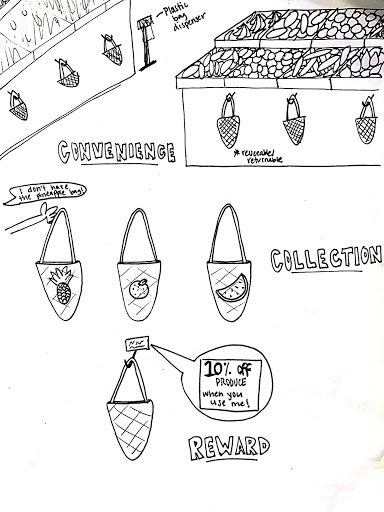 Plastic
bag
dispenser
* reuseable/
returnable
CONVENIENCE
I don't have
the pineapple bag!
COLLECTION
10% off
PRODUCE
when you
use me!
REWARD